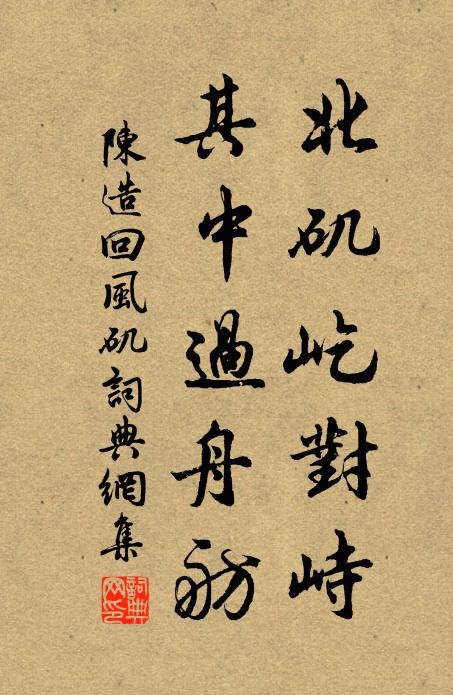 北矶屹對峙
其中過舟舫
陳造回風矶詞典網集
詞典网印